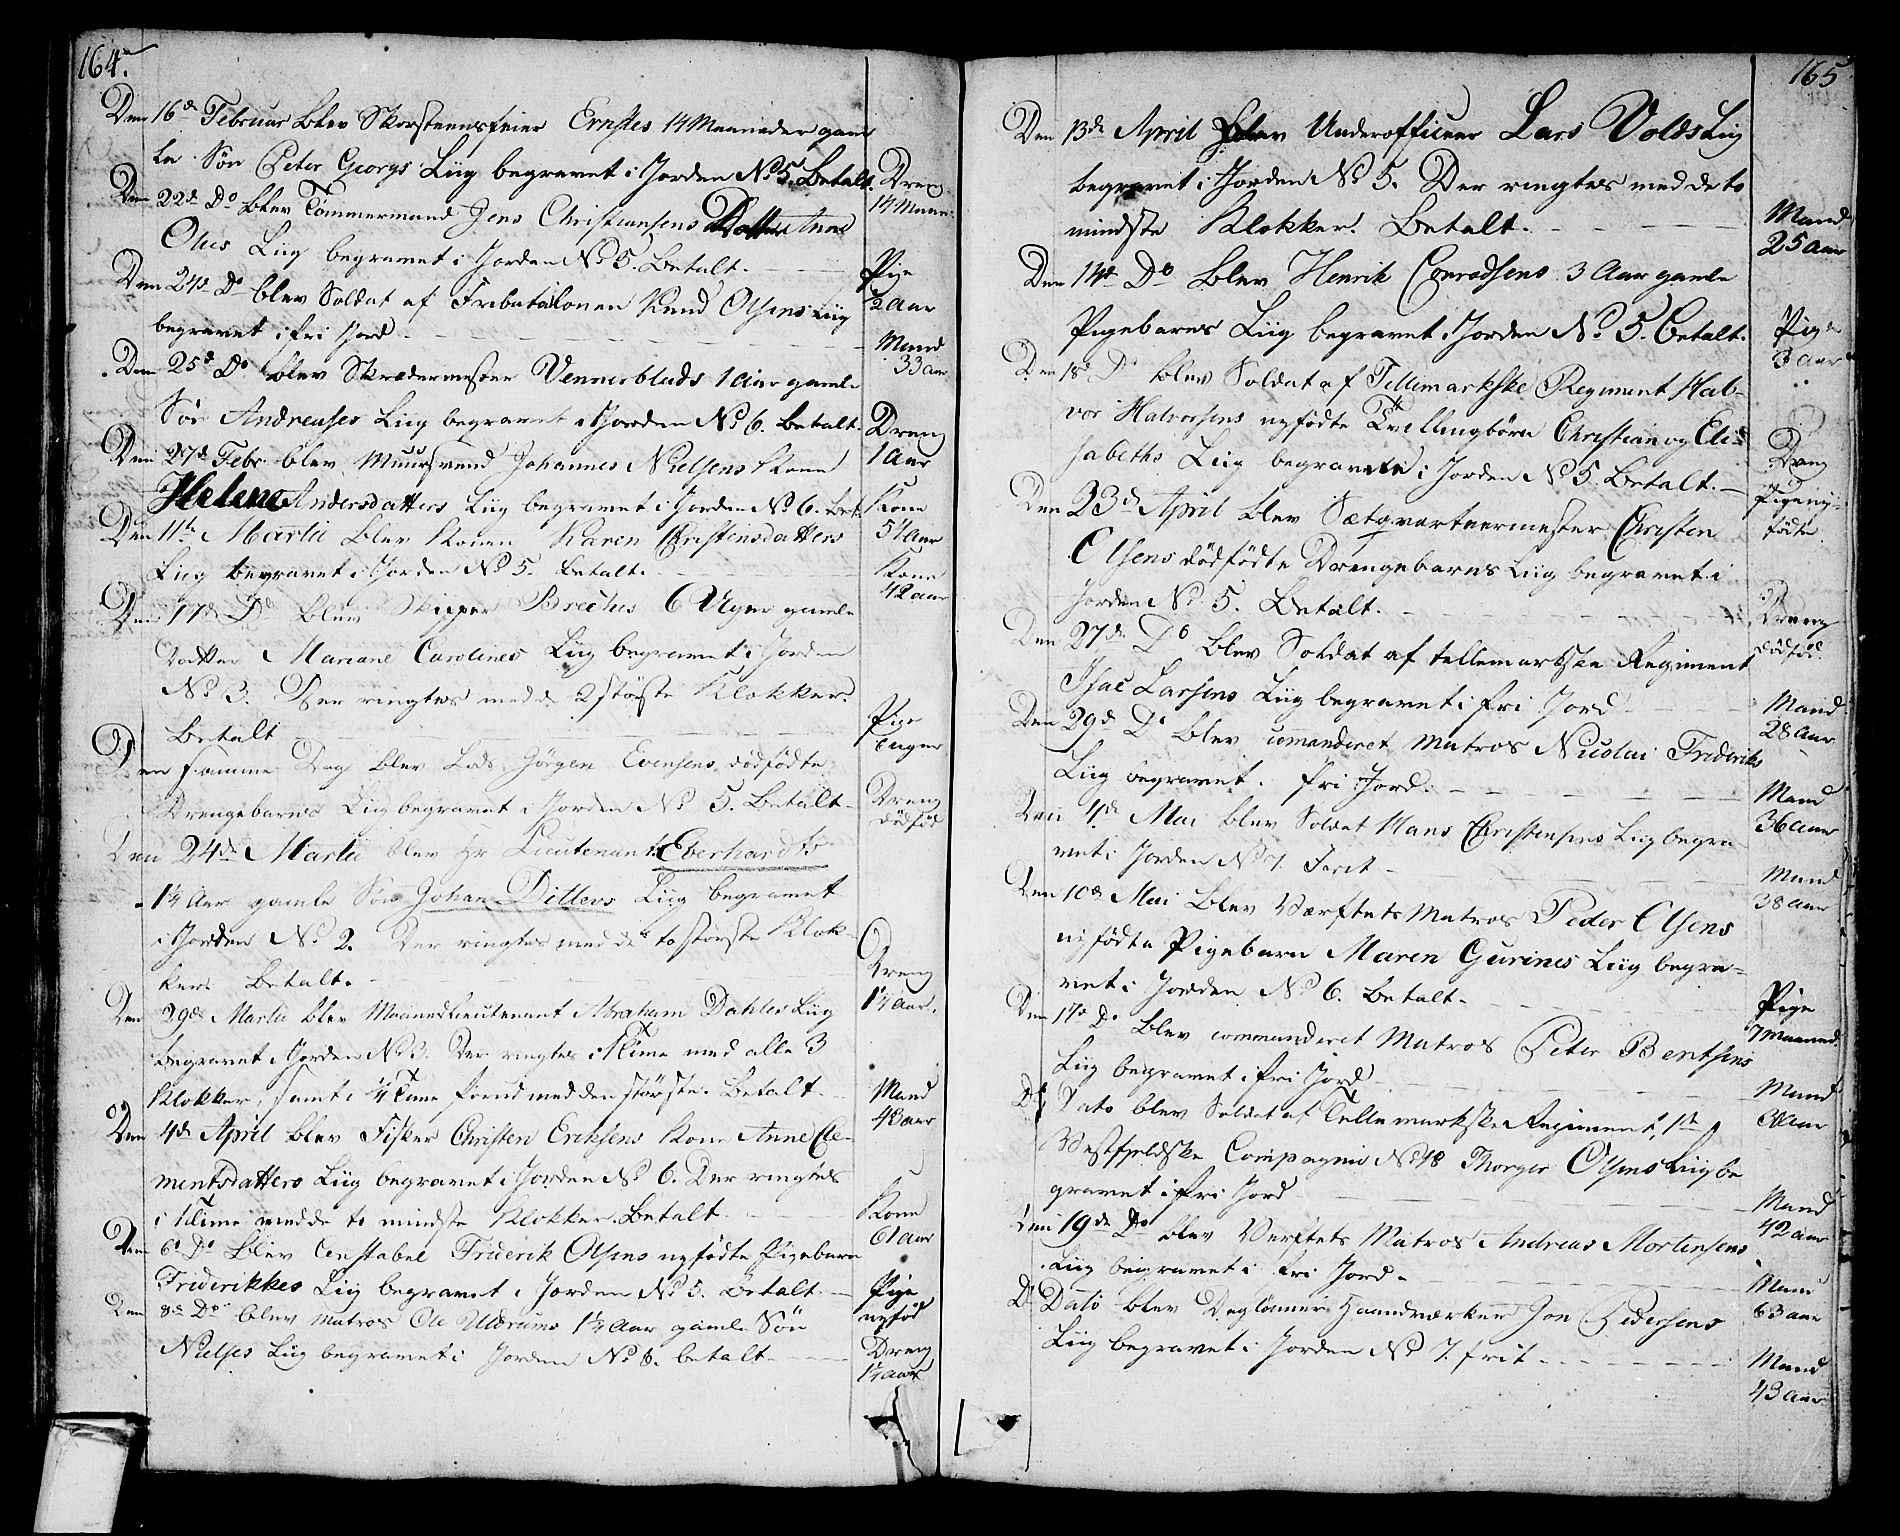 164.
Den 16de Februar blev Skorsteensfeier Ernstes 14 Maaneder gam-
le Søn Peter Georgs Liig begravet i Jorden No 5. Betalt.
Dreng
14 Maan:
Den 22de Do blev Tømmermand Jens Christiansens Datter Anne
Olies Liig begravet i Jorden No 5. Betalt.
Pige
2 Aar
Den 24de Do blev Soldat af Fribataillonen Knud Olsens Liig
begravet i fri Jord
Mand
33 Aar
Den 25de Do blev Skrædermester Vennerbluds 1 Aar gamle
Søn Andreases Liig begravet i Jorden No 6. Betalt.
Dreng
1 Aar
Den 27de Febr. blev Muursvend Johannes Nielsens Kone
Helene Andersdatters Liig begravet i Jorden No 6. Bet:
Kone
54 Aar
Den 11te Martii blev Konen Karen Christensdatters
Liig begravet i Jorden No 5. Betalt.
Kone
42 Aar
Den 17de Do blev Skipper 6 Uger gamle
Datter Mariane Carolines Liig begravet i Jorden
No 3. Der ringtes med de 2 største Klokker.
Betalt
Pige
6 uger
Den samme Dag blev Lods Jørgen Evensens dødfødte
Drengebarns Liig begravet i Jorden No 5. Betalt.
Dreng
dødfød
Den 24de Martii blev Hr Lieutenant Eberhardts
1¼ Aar gamle Søn Johan Ditlevs Liig begravet
i Jorden No 2. Der ringtes med de to største Klok-
ker. Betalt.
Dreng
1¼ Aar.
Den 29de Martii blev Maanedslieutenant Abraham Dahles Liig
begravet i Jorden No 3. Der ringtes i Time med alle 3
Klokker, samt i ¼ Time forud med den største. Betalt.
Mand
43 Aar
Den 4de April blev Fisker Christen Eriksens Kone Anne Cle-
mentsdatters Liig begravet i Jorden No 6. Der ringtes
i 1 Time med de to mindste Klokker. Betalt
Kone
61 Aar
Den 6te Do blev Constabel Friderik Olsens nyfødte Pigebarn
Friderikkes Liig begravet i Jorden No 5. Betalt.
Pige
nyfød
Den 8de Do blev Matros Ole Uldrums 1¼ Aar gamle Søn
Nielses Liig begravet i Jorden No 6. betalt.
Dreng
1¼ Aar
165
Den 13de April blev Underofficeer Lars Volds Liig
begravet i Jorden No 5. Der ringtes med de to
mindste Klokker. Betalt.
Mand
25 Aar
Den 14de Do blev Henrik Conradsens 3 Aar gamle
Pigebarns Liig begravet i Jorden No 5. Betalt.
Pige
3 Aar
Den 18de Do blev Soldat af Tellemarkske Regiment Hal-
vor Halvorsens nyfødte Tvillingbørn Christian og Eli-
sabeths Liig begravede i Jorden No 5. Betalt.
Dreng
Pige ny-
fødte
Den 23de April blev Sætqvarteermester Christen
Olsens dødfødte Drengebarns Liig begravet i
Jorden No 5. Betalt.
Dreng
dødfød.
Den 27de Do blev Soldat af tellemarkske Regiment
Isac Larsens Liig begravet i fri Jord
Mand
28 Aar
Den 29de Do blev comanderet Matros Nicolai Frideriks
Liig begravet i fri Jord.
Mand
36 Aar
Den 4de Mai blev Soldat Hans Christensens Liig begra-
vet i Jorden No 7. Frit
Mand
38 Aar
Den 10de Mai blev Værftets Matros Peder Olsens
nyfødte Pigebarn Maren Gurines Liig begra-
vet i Jorden No 6. Betalt.
Pige
7 Maaned.
Den 17de Do blev commanderet Matros Peter Bentsens
Liig begravet i fri Jord
Mand
Aar
D: Dato blev Soldat af Tellemarkske Regiment, 1te
Vestfieldske Compagnie No 48 Thorger Olsens Liig be
gravet i fri Jord
Mand
42 Aar
Den 19de Do blev Verftets Matros Andreas Mortensens
Liig begravet i fri Jord.
Mand
63 Aar
D: Dato blev Dagløner Haandværker Jon Pedersens
Liig begravet i Jorden No 7. frit.
Mand
43 Aar